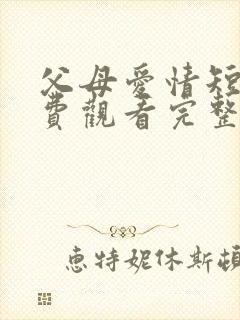 父母愛情短
費觀看完整
惠特妮休斯頓